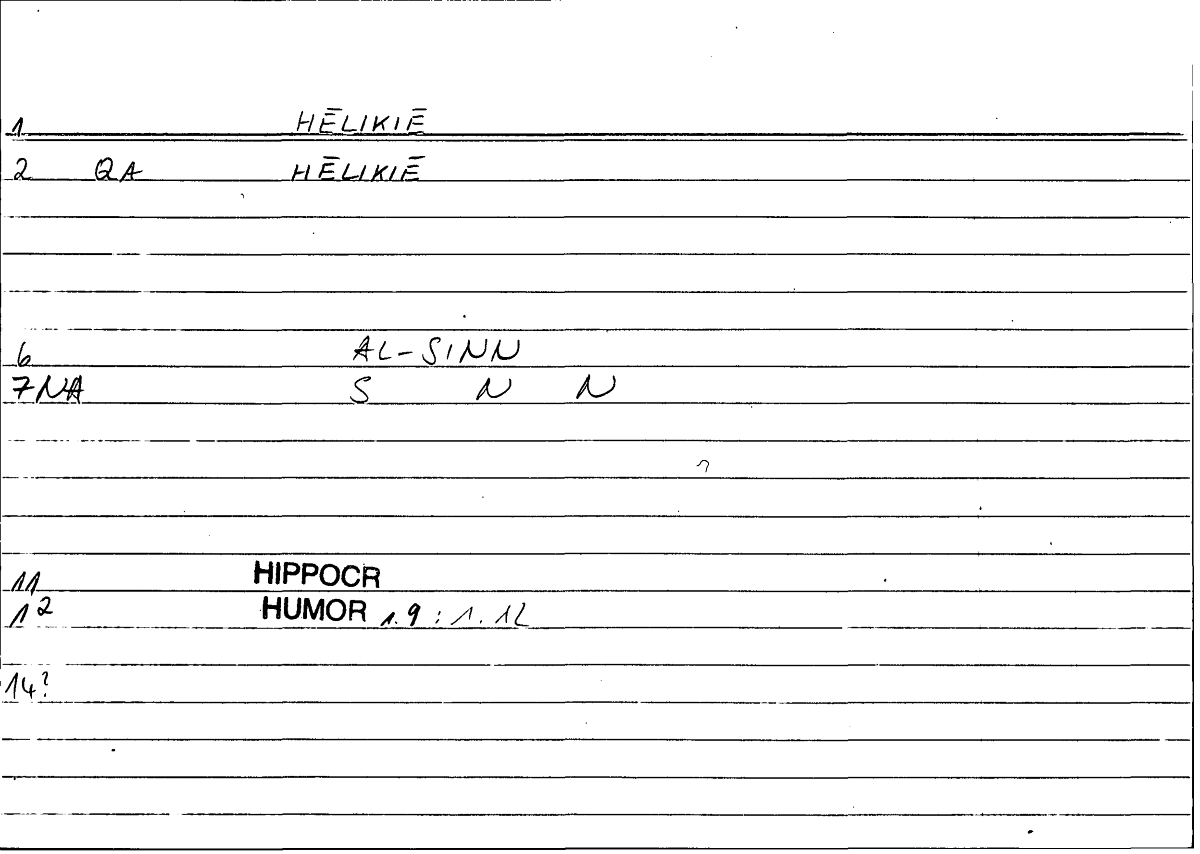 1 HĒLIKIĒ
2 QA HĒLIKIĒ
6 AL-SINN
7 NA S N N
11 HIPPOCR
12 HUMOR 1.9 : 1.12
14?